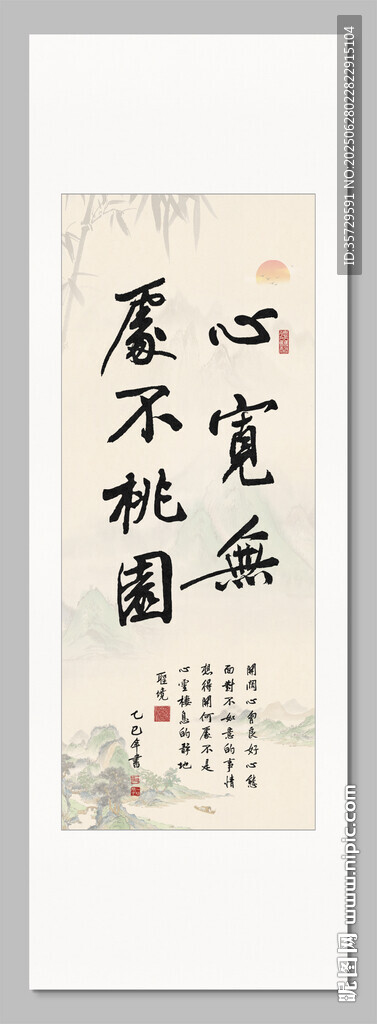 心寬無
處不桃園
開闊心胸良好心態
面對不如意的事情
想得開何處不是
心靈棲息的靜地
聖境
乙巳年書
ID:35729591 NO:20250628022822915104
昵图网 www.nipic.com